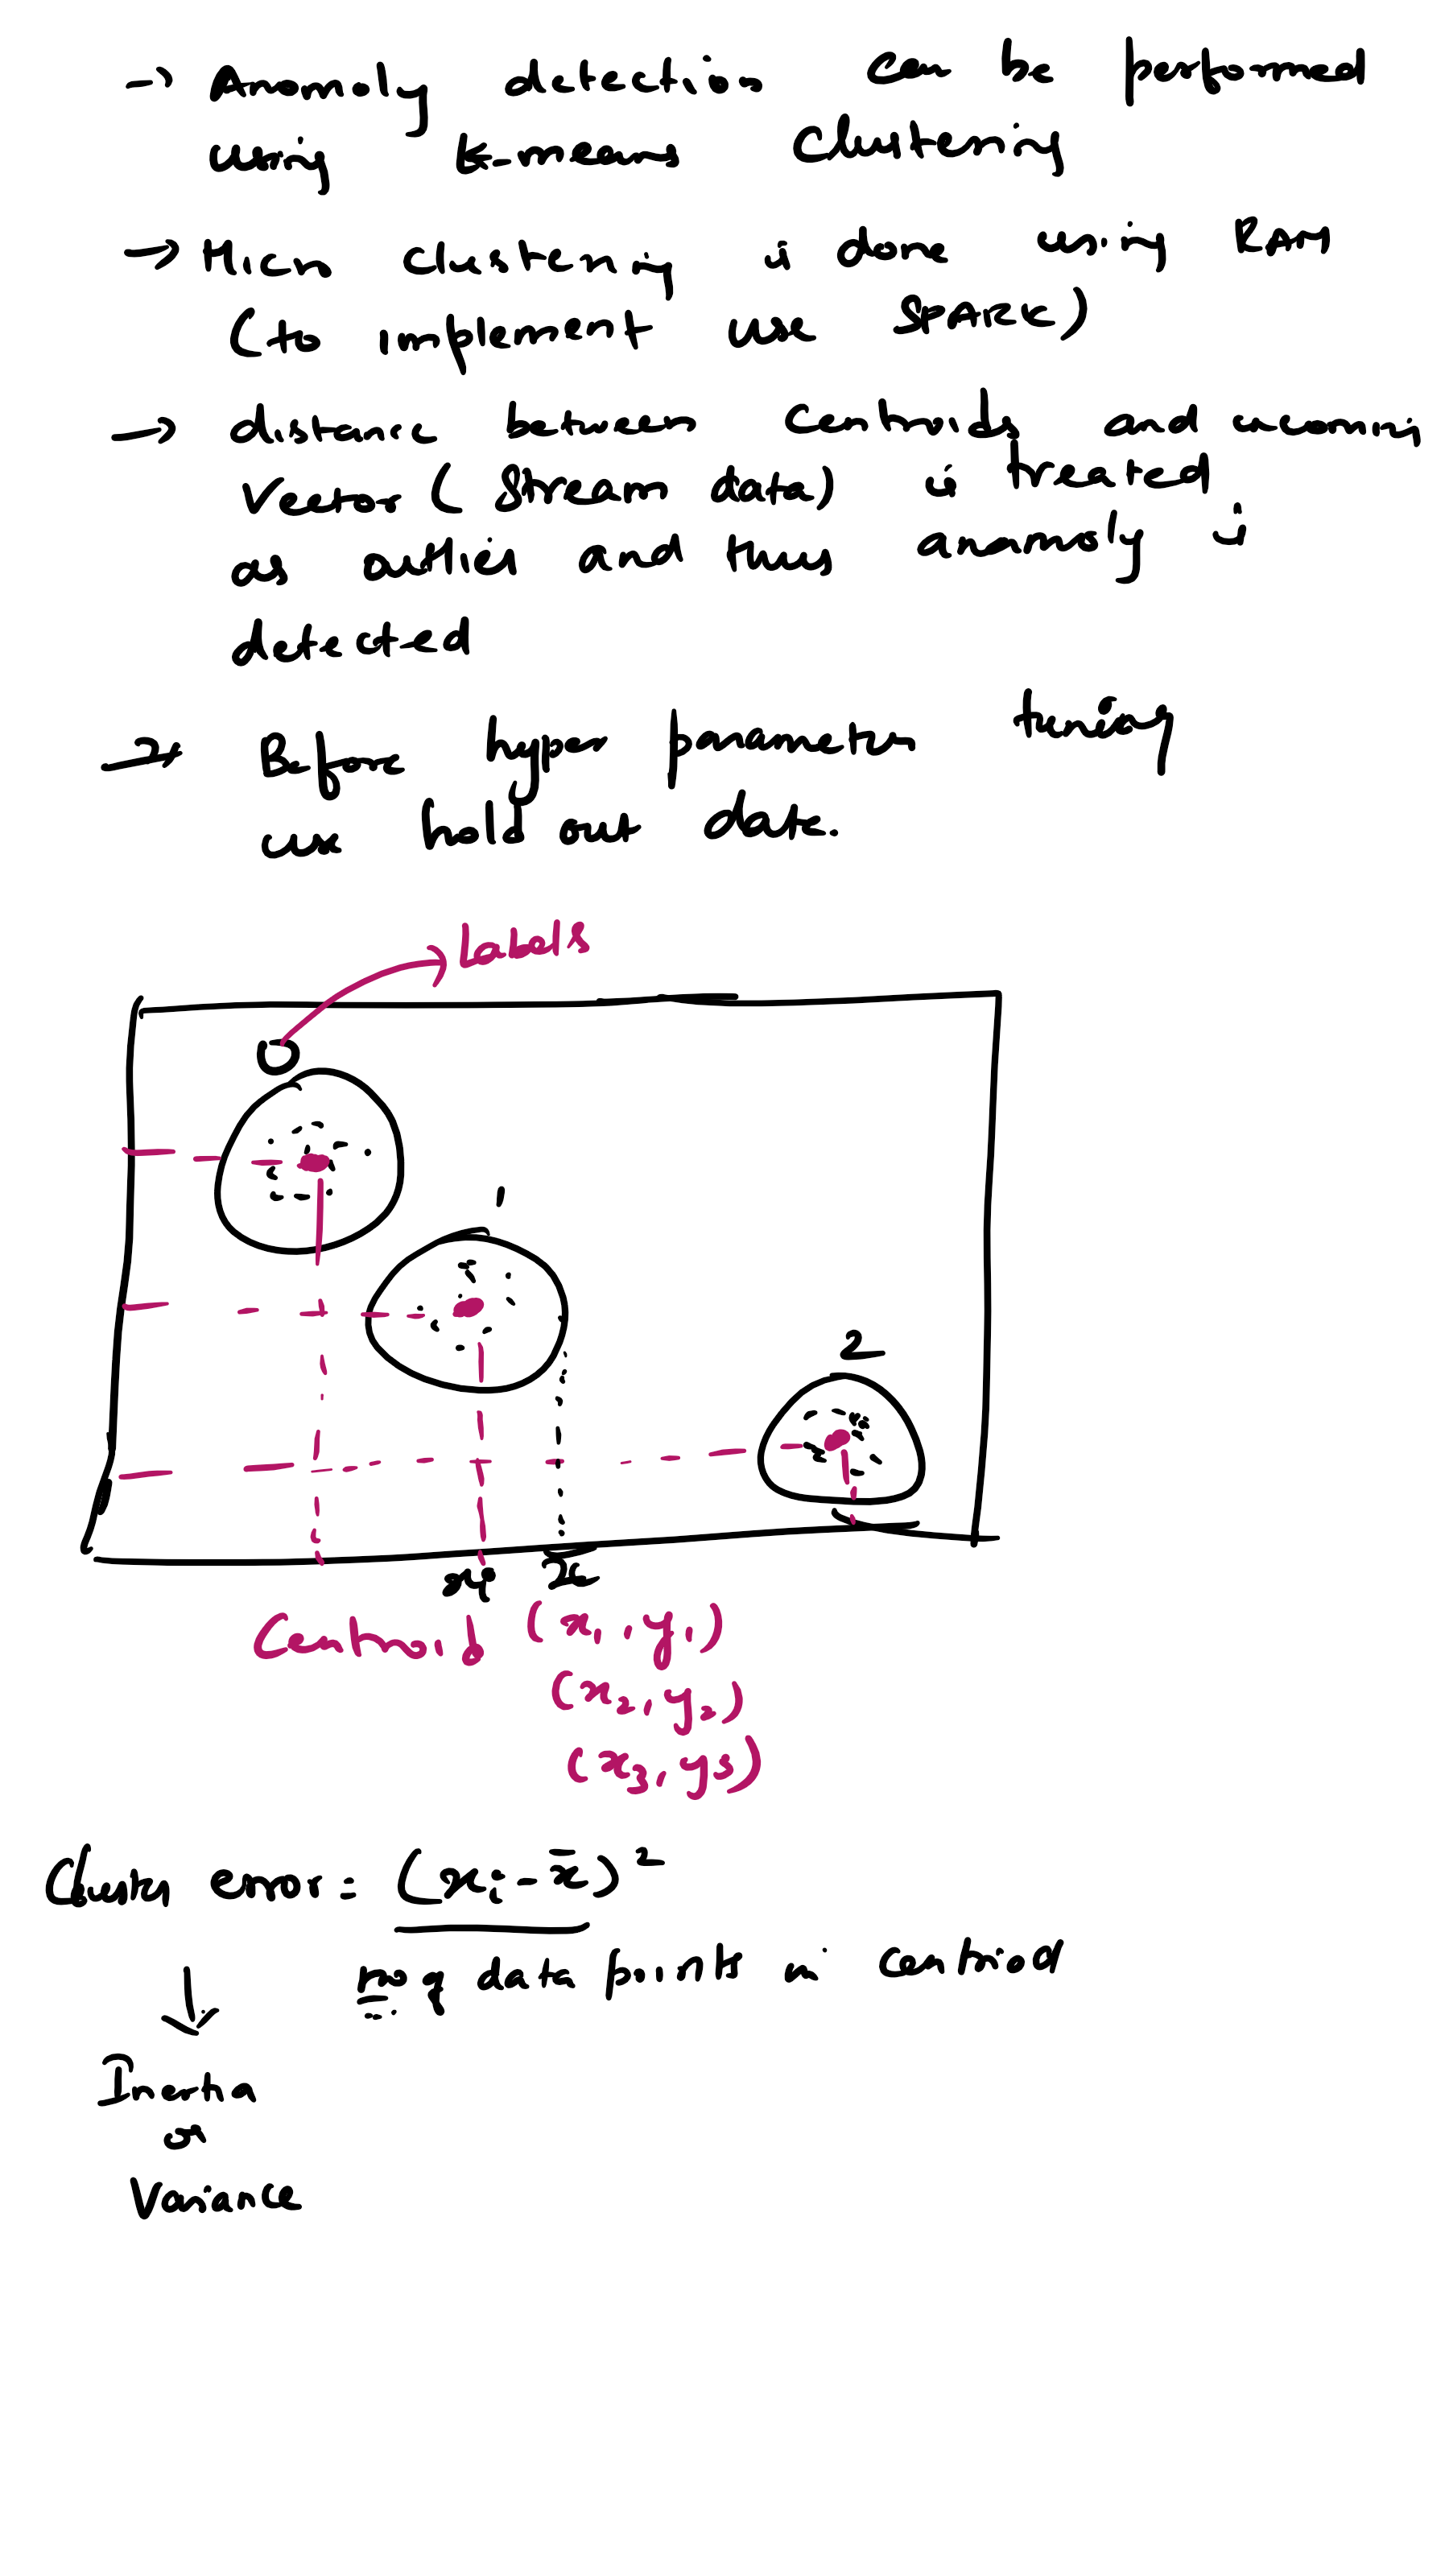 -> Anomoly detection can be performed
using K-means Clustering
-> Micro clustering is done using RAM
(to implement use SPARK)
-> distance between Centroids and incoming
Vector (Stream data) is treated
as outlier and thus anamoly is
detected
-> Before hyper parameter tuning
use hold out data.
Labels
0
1
2
Centroid (x₁, y₁)
(x₂, y₂)
(x₃, y₃)
Cluster error = (xᵢ - x̄)²
no of data points in centriod
↓
Inertia
or
Variance